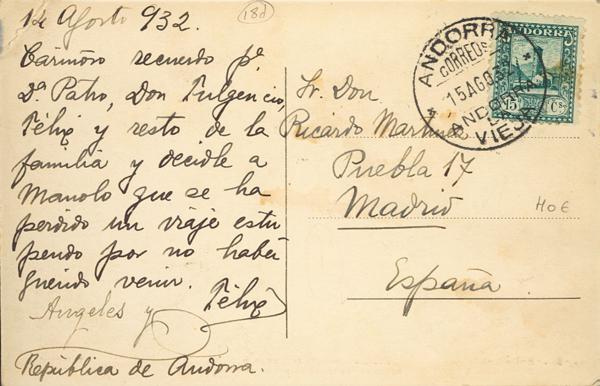 14 Agosto 932.
18d
Cariñoso recuerdo pª
Dª Patro, Don Fulgencio,
Félix y resto de la
familia y decidle a
Manolo que se ha
perdido un viaje estu
pendo por no haber
querido venir.
Angeles y Félix
República de Andorra.
Sr. Don
Ricardo Martínez
Puebla 17
Madrid
España.
40 €
ANDORRA
CORREOS
15 AGO 32
ANDORRA LA
VIEJA
ANDORRA
CORREOS
15 Cs